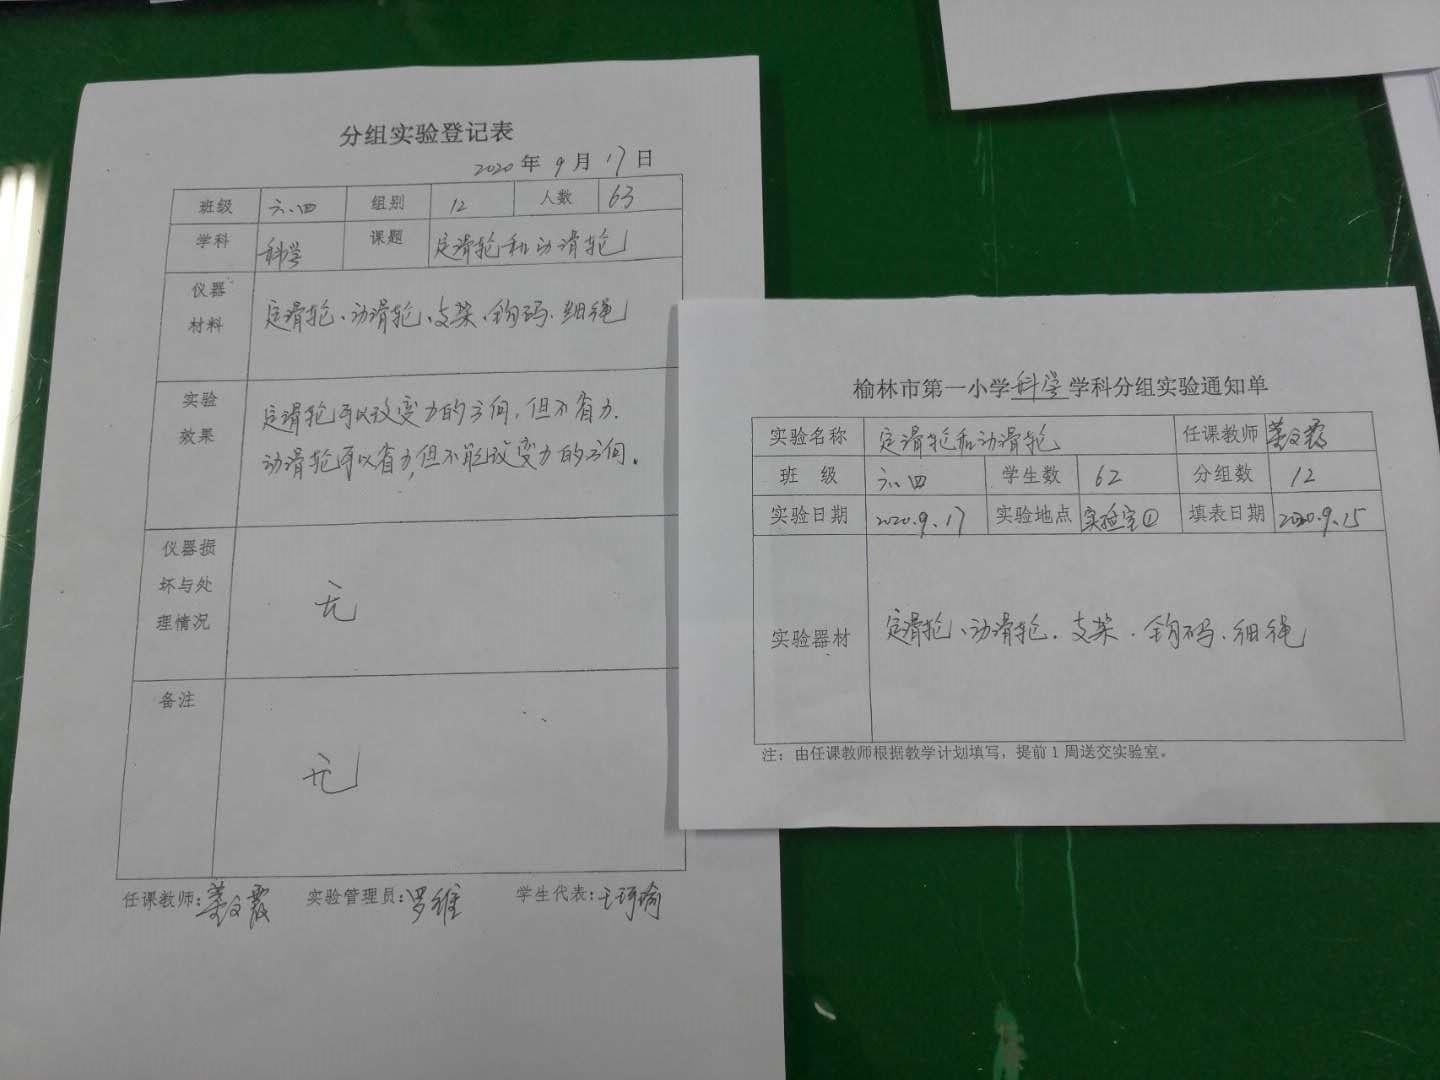 分组实验登记表
2020年9月17日
班级 六.四 组别 12 人数 63
学科 科学 课题 定滑轮和动滑轮
仪器材料 定滑轮、动滑轮、支架、钩码、细绳
实验效果 定滑轮可以改变力的方向，但不省力.
动滑轮可以省力，但不能改变力的方向.
仪器损坏与处理情况 无
备注 无
任课教师： 实验管理员：罗维 学生代表：王珂瑜
榆林市第一小学科学学科分组实验通知单
实验名称 定滑轮和动滑轮 任课教师
班级 六.四 学生数 62 分组数 12
实验日期 2020.9.17 实验地点 实验室① 填表日期 2020.9.15
实验器材 定滑轮、动滑轮.支架.钩码.细绳
注：由任课教师根据教学计划填写，提前1周送交实验室。